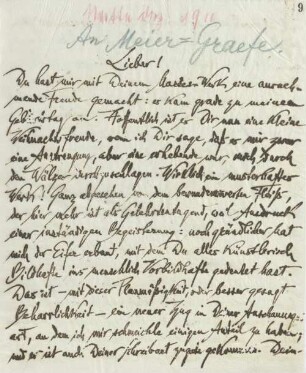 9
An Meier-Graefe.
Lieber!
Du hast mir mit Deinem Marées-Werk eine ausneh-
mende Freude gemacht: es kam grade zu meinem
Geburtstag an. Hoffentlich ist es Dir nun eine kleine
Weihnachtsfreude, wenn ich Dir sage, daß es mir zwar
eine Anstrengung, aber eine erhebende war, mich durch
den Wälzer durchzuschlagen. Wirklich ein musterhaftes
Werk! Ganz abgesehen von dem bewundernswerten Fleiß,
der hier mehr ist als Gelehrtentugend,
einer inständigen Begeisterung: noch gründlicher hat
mich der Eifer erbaut, mit dem Du alles Künstlerisch
Bildhafte ins menschlich Vorbildhafte gedeutet hast.
Das ist - mit dieser Planmäßigkeit, oder besser gesagt
Beharrlichkeit - ein neuer Zug in Deiner Anschauungs-
art, an dem ich mir schmeichle einigen Anteil zu haben;
und er ist auch Deiner Schreibart zugute gekommen. Dein